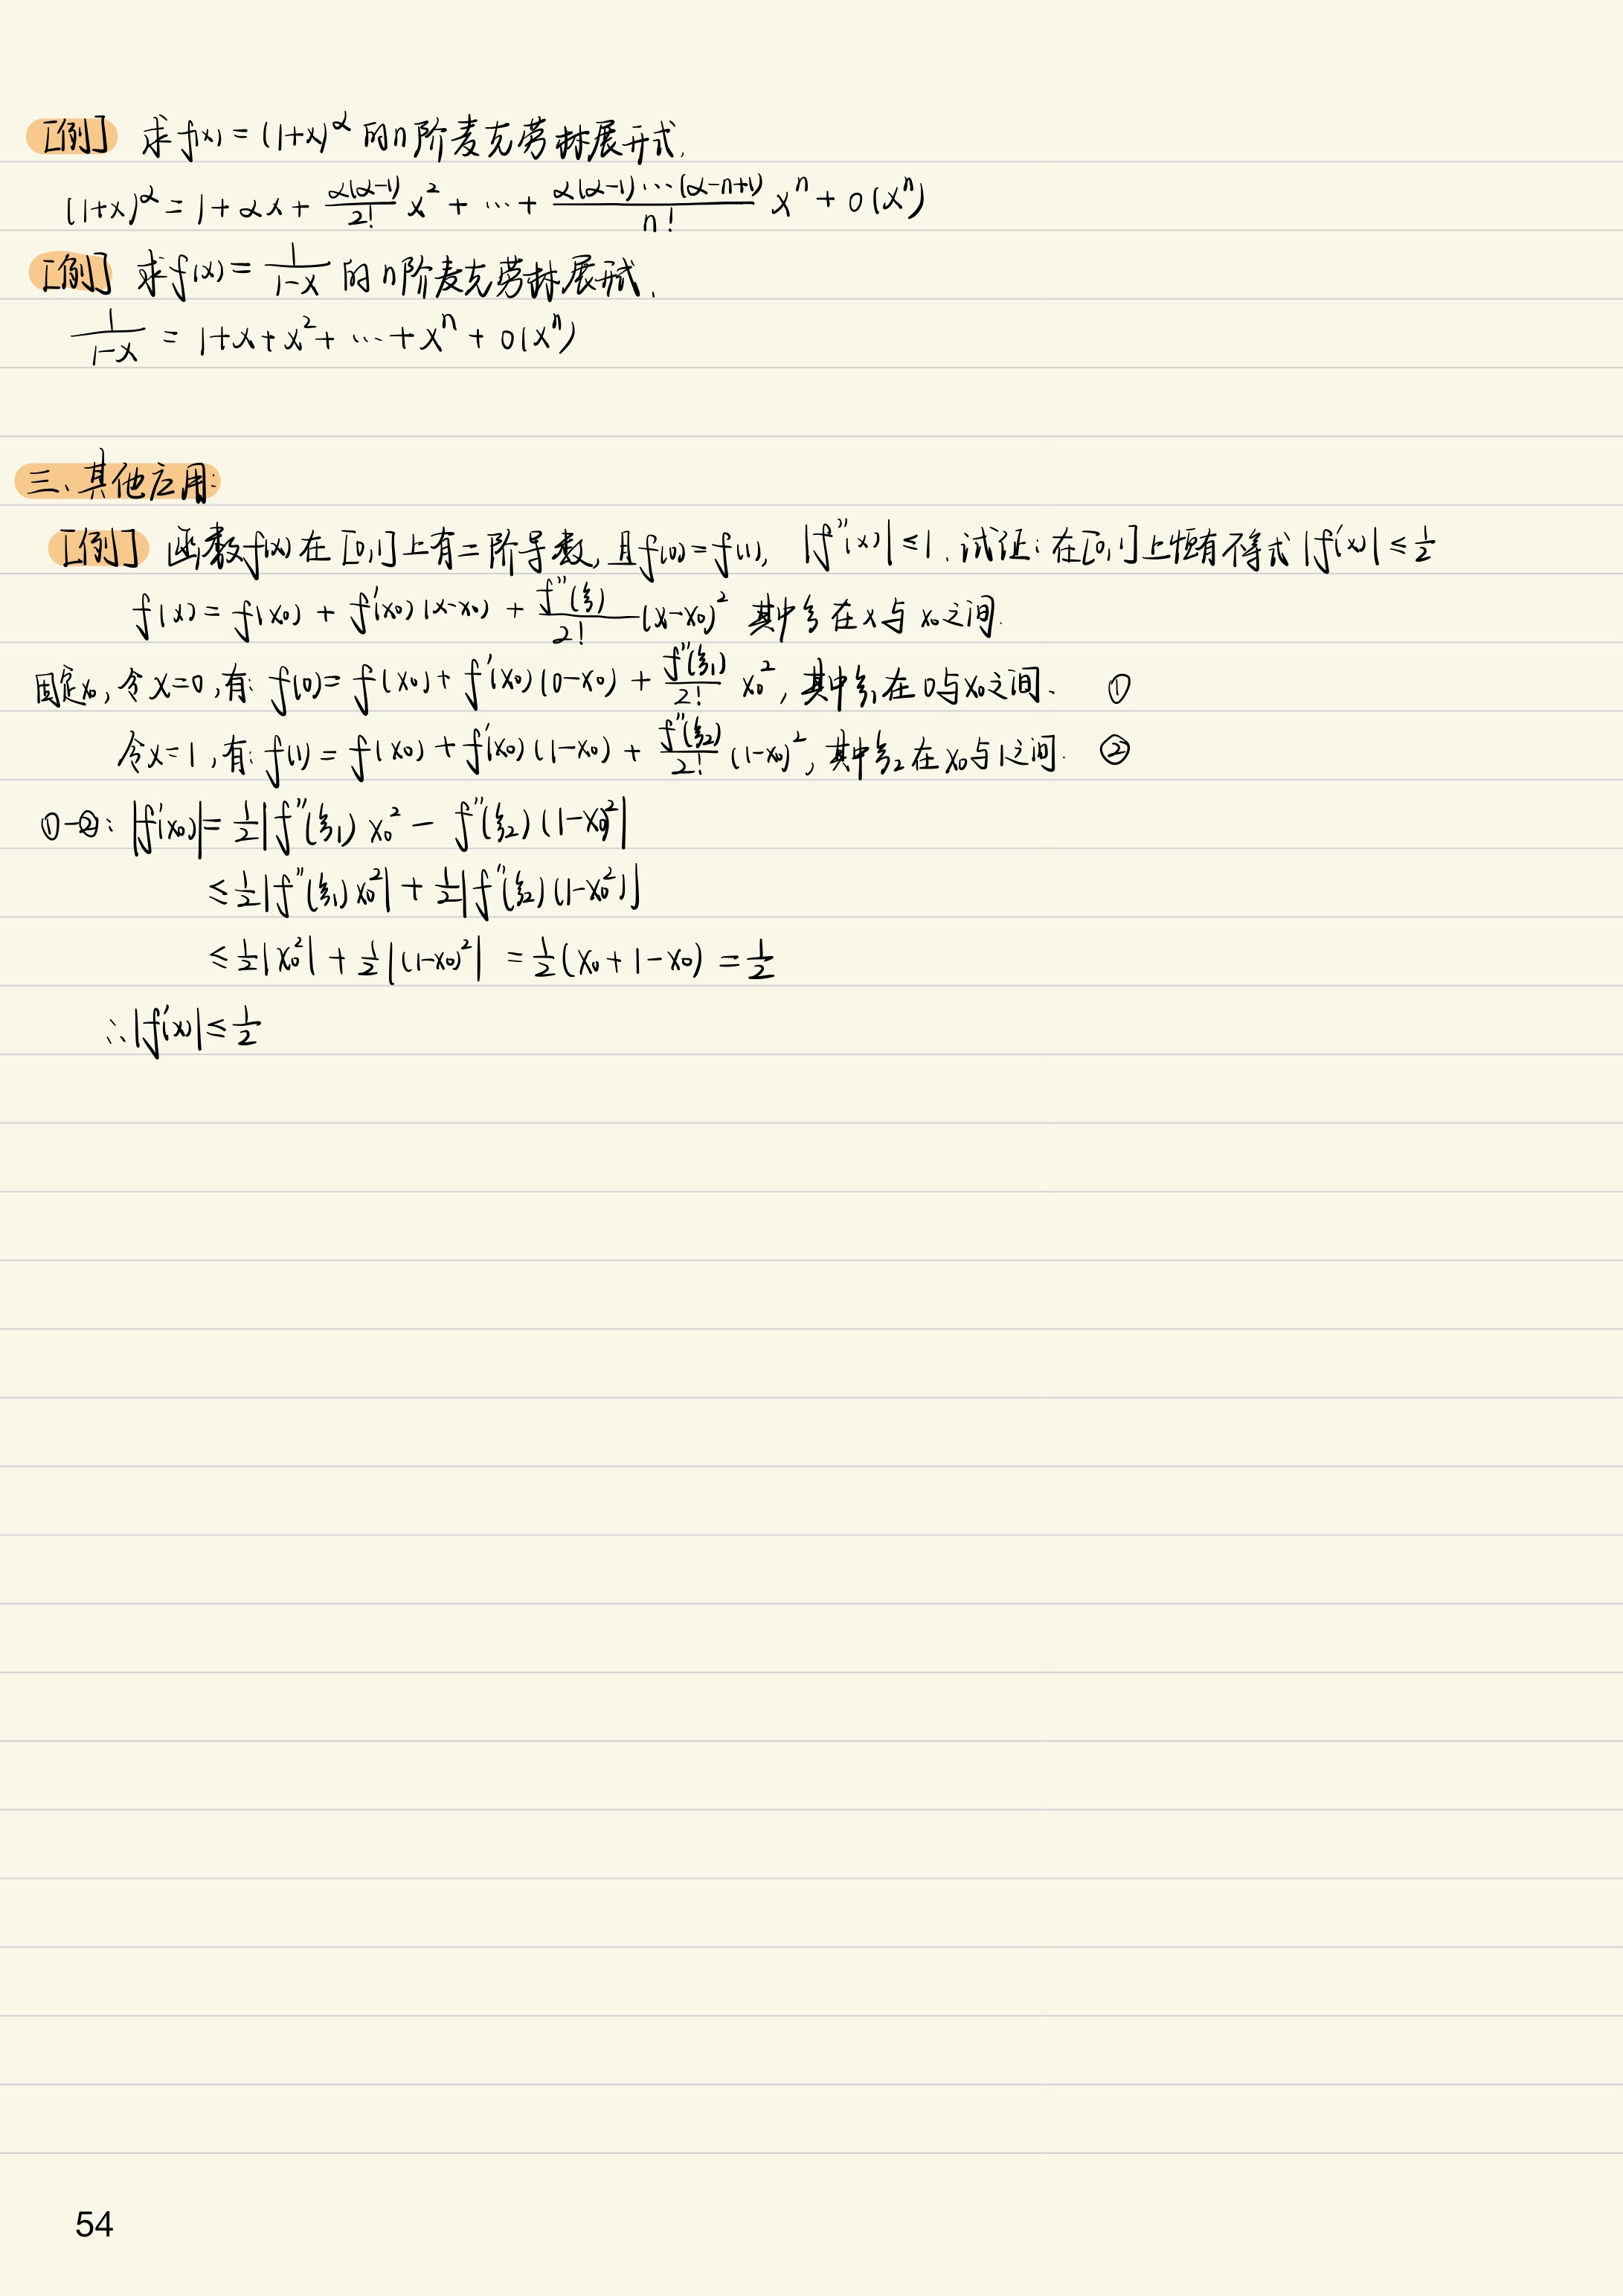 [例] 求f(x)=(1+x)^α 的n阶麦克劳林展开式.
(1+x)^α = 1+αx+ \frac{α(α-1)}{2!}x^2 + … + \frac{α(α-1)…(α-n+1)}{n!} x^n + o(x^n)
[例] 求f(x)= \frac{1}{1-x} 的n阶麦克劳林展开式.
\frac{1}{1-x} = 1+x+x^2+ … +x^n + o(x^n)
三、其他应用:
[例] 函数f(x)在[0,1]上有二阶导数,且f(0)=f(1), |f''(x)|≤1. 试证:在[0,1]上恒有不等式|f'(x)|≤\frac{1}{2}
f(x)=f(x_0)+f'(x_0)(x-x_0)+\frac{f''(ξ)}{2!}(x-x_0)^2 其中ξ在x与x_0之间.
固定x_0,令x=0,有: f(0)=f(x_0)+f'(x_0)(0-x_0)+\frac{f''(ξ_1)}{2!}x_0^2,其中ξ_1在0与x_0之间. ①
令x=1,有: f(1)=f(x_0)+f'(x_0)(1-x_0)+\frac{f''(ξ_2)}{2!}(1-x_0)^2,其中ξ_2在x_0与1之间. ②
①-②: |f'(x_0)|=\frac{1}{2}|f''(ξ_1)x_0^2 - f''(ξ_2)(1-x_0)^2|
≤\frac{1}{2}|f''(ξ_1)x_0^2|+\frac{1}{2}|f''(ξ_2)(1-x_0^2)|
≤\frac{1}{2}|x_0^2|+\frac{1}{2}|(1-x_0)^2| =\frac{1}{2}(x_0+1-x_0)=\frac{1}{2}
∴|f'(x)|≤\frac{1}{2}
54